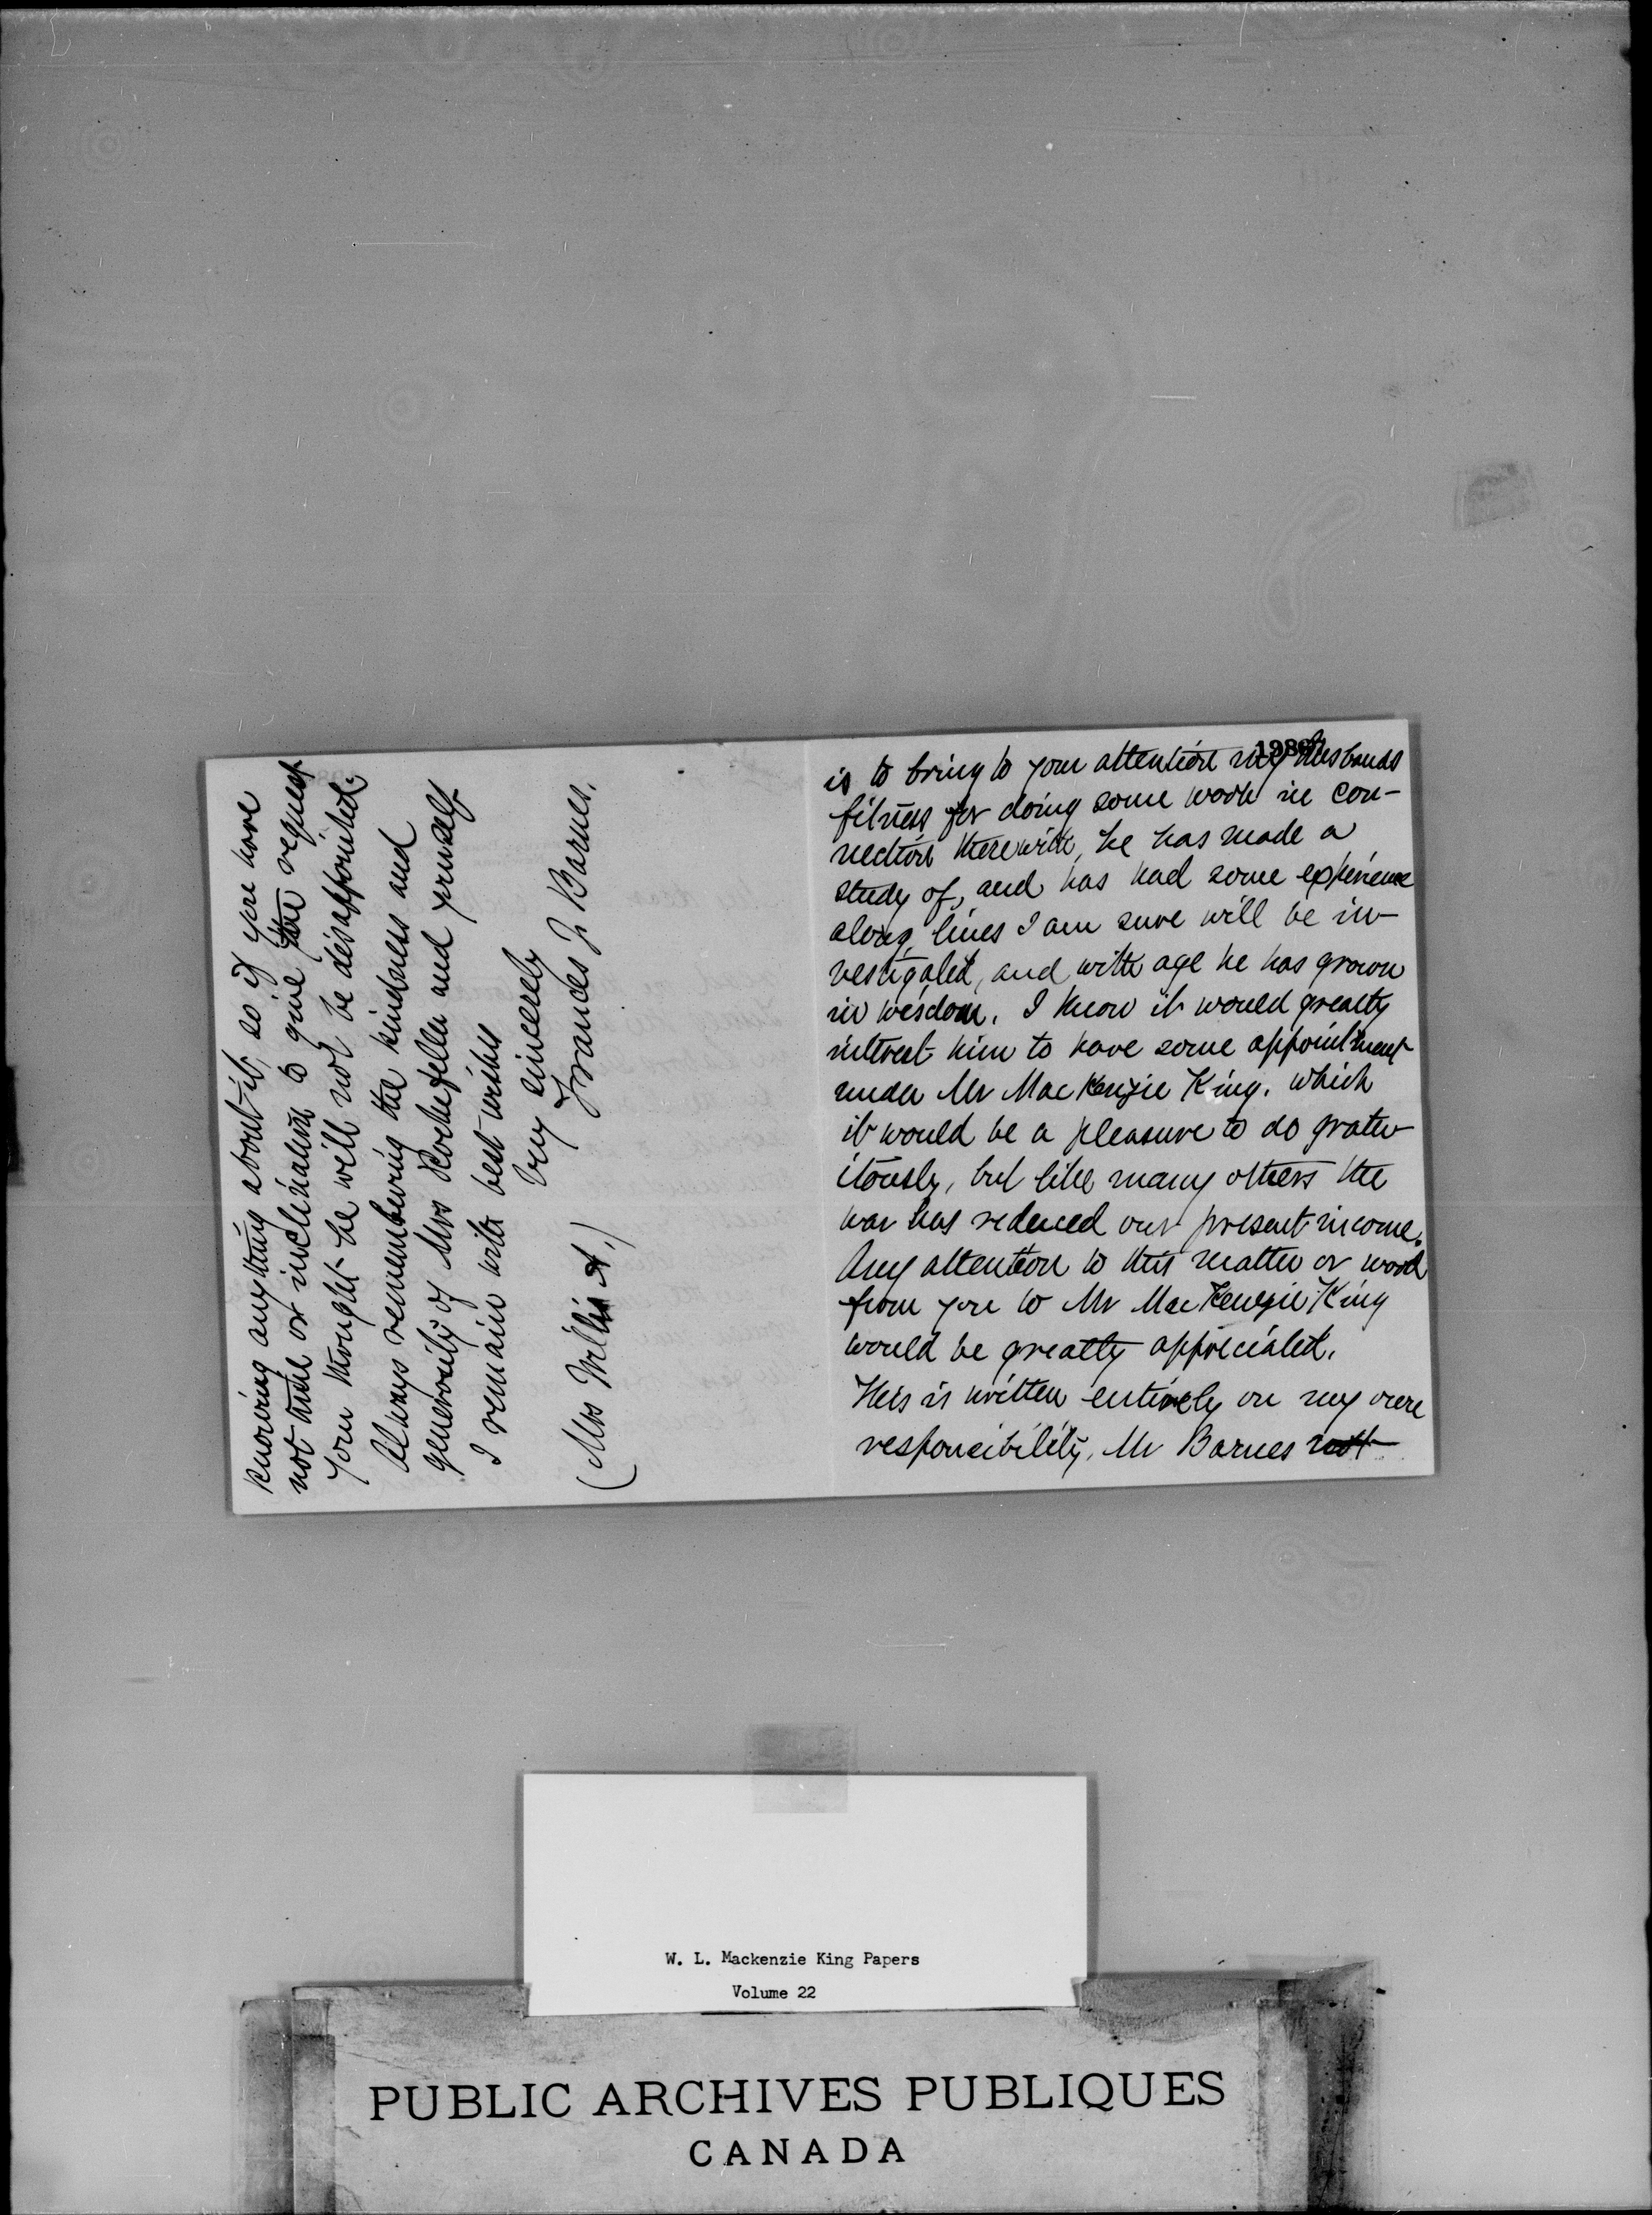 1986
is to bring to your attention my husbands
fitness for doing some work in con-
nection therewith, he has made a
study of, and has had some experience
along lines I am sure will be in-
vestigated, and with age he has grown
in wisdom. I know it would greatly
interest him to have some appointment
under Mr MacKenzie King. which
it would be a pleasure to do gratu-
itously, but like many others the
war has reduced our present income.
Any attention to this matter or word
from you to Mr MacKenzie King
would be greatly appreciated.
This is written entirely on my own
responsibility, Mr Barnes not
knowing anything about it, so if you have
not time or inclination to give the request
your thought he will not be disappointed.
Always remembering the kindness and
generosity of Mrs Rockefeller and yourself
I remain with best wishes
Very sincerely
Frances J Barnes.
(Mrs Willis A.)
W. L. Mackenzie King Papers
Volume 22
PUBLIC ARCHIVES PUBLIQUES
CANADA